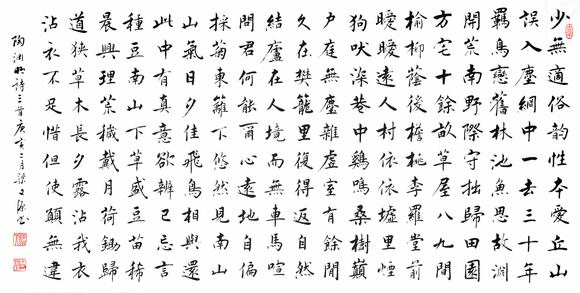 少無適俗韻性本愛丘山
誤入塵網中一去三十年
羈鳥戀舊林池魚思故淵
開荒南野際守拙歸田園
方宅十餘畝草屋八九間
榆柳蔭後檐桃李羅堂前
曖曖遠人村依依墟里煙
狗吠深巷中雞鳴桑樹巔
户庭無塵雜虛室有餘閒
久在樊籠裏復得返自然
結廬在人境而無車馬喧
問君何能爾心遠地自偏
採菊東籬下悠然見南山
山氣日夕佳飛鳥相與還
此中有真意欲辨已忘言
種豆南山下草盛豆苗稀
晨興理荒穢戴月荷鋤歸
道狹草木長夕露沾我衣
沾衣不足惜但使願無違
陶淵明詩三首庚寅